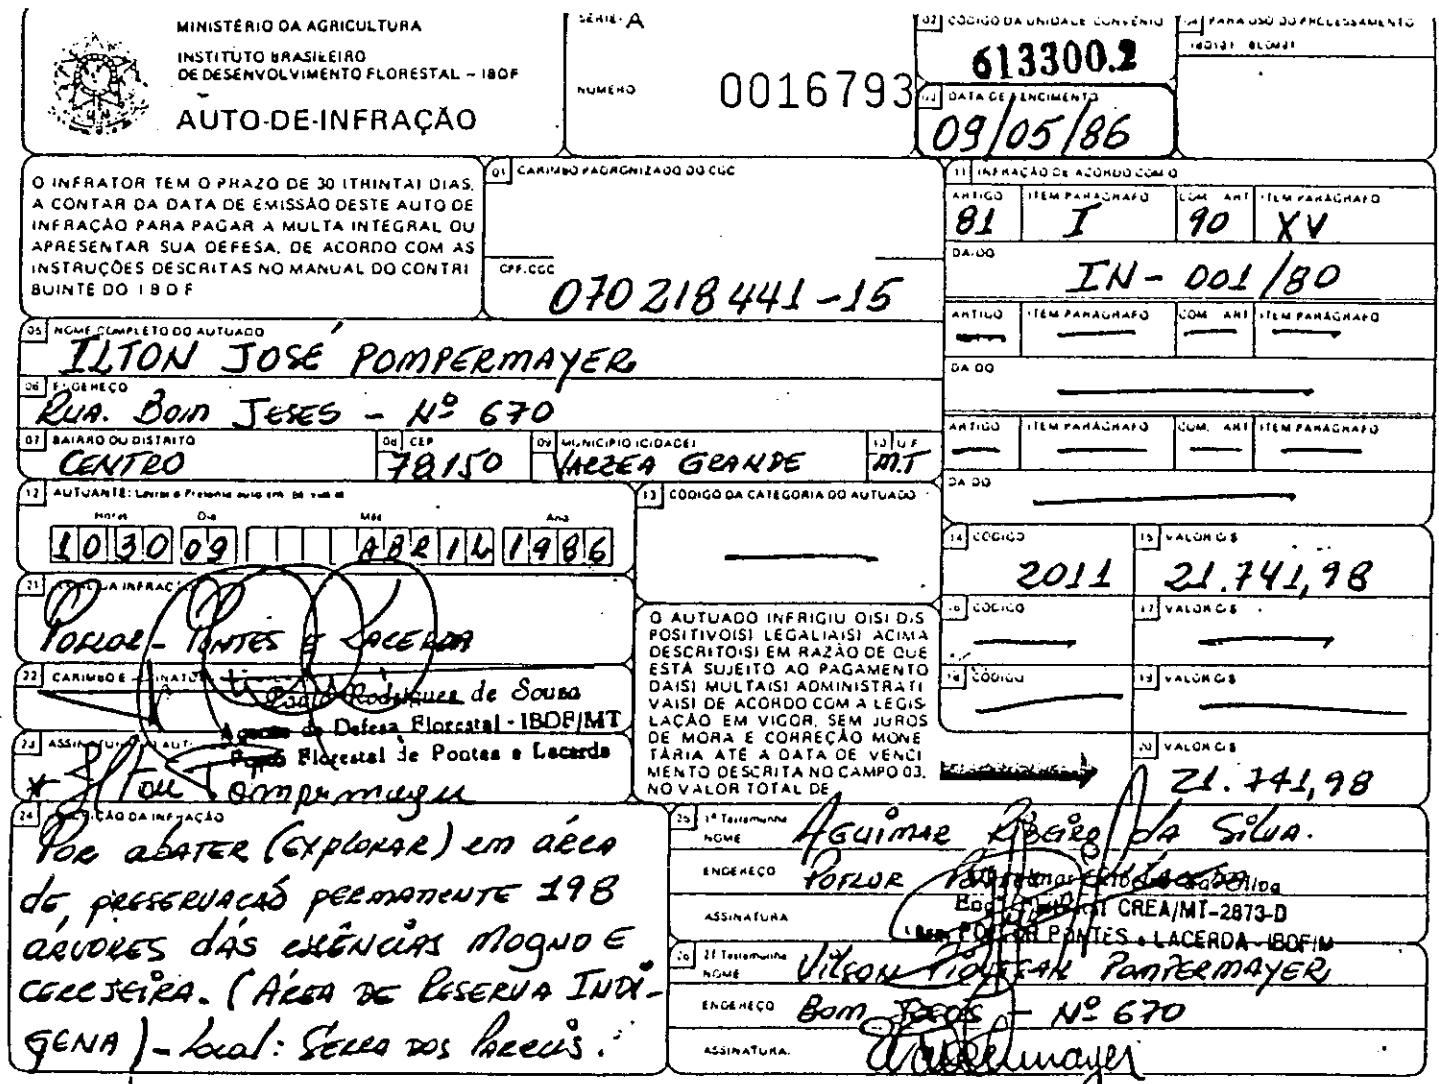 MINISTÉRIO DA AGRICULTURA
INSTITUTO BRASILEIRO
DE DESENVOLVIMENTO FLORESTAL - IBDF
AUTO-DE-INFRAÇÃO
SÉRIE - A
NUMERO 0016793
02 CODIGO DA UNIDADE CONVENIO
613300.2
03 DATA DE VENCIMENTO
09/05/86
04 PARA USO DO PROCESSAMENTO
O INFRATOR TEM O PRAZO DE 30 (TRINTA) DIAS,
A CONTAR DA DATA DE EMISSÃO DESTE AUTO DE
INFRAÇÃO PARA PAGAR A MULTA INTEGRAL OU
APRESENTAR SUA DEFESA, DE ACORDO COM AS
INSTRUÇÕES DESCRITAS NO MANUAL DO CONTRI
BUINTE DO I B D F
01 CARIMBO PADRONIZADO DO CGC
CPF.CGC
070 218 441-15
11 INFRAÇÃO DE ACORDO COM O
ARTIGO ITEM PARÁGRAFO COM. ART ITEM PARÁGRAFO
81 I 90 XV
DA-DO
IN- 001/80
ARTIGO ITEM PARÁGRAFO COM ART ITEM PARÁGRAFO
DA DO
ARTIGO ITEM PARÁGRAFO COM. ART ITEM PARÁGRAFO
DA DO
05 NOME COMPLETO DO AUTUADO
ILTON JOSÉ POMPERMAYER
06 ENDEREÇO
RUA. BOM JESES - Nº 670
07 BAIRRO OU DISTRITO
CENTRO
08 CEP
78.150
09 MUNICIPIO (CIDADE)
VARZEA GRANDE
10 U.F
MT
12 AUTUANTE:
Horas Dia Mês Ano
1030 09 ABRIL 1986
13 CÓDIGO DA CATEGORIA DO AUTUADO
14 CODIGO
2011
15 VALOR Cz$
21.741,98
16 CODIGO
17 VALOR Cz$
18 CODIGO
19 VALOR Cz$
20 VALOR Cz$
21.741,98
21 LOCAL DA INFRAÇÃO
POFLOR - PONTES E LACERDA
22 CARIMBO E ASSINATURA
Rodrigues de Sousa
Agente de Defesa Florestal - IBDF/MT
Posto Florestal de Pontes e Lacerda
23 ASSINATURA DO AUTUADO
* Ilton Pompermayer
O AUTUADO INFRIGIU O(S) DIS
POSITIVO(S) LEGAL(AIS) ACIMA
DESCRITO(S) EM RAZÃO DE QUE
ESTÁ SUJEITO AO PAGAMENTO
DA(S) MULTA(S) ADMINISTRATI
VA(S) DE ACORDO COM A LEGIS
LAÇÃO EM VIGOR, SEM JUROS
DE MORA E CORREÇÃO MONE
TÁRIA ATÉ A DATA DE VENCI
MENTO DESCRITA NO CAMPO 03,
NO VALOR TOTAL DE
24 DESCRIÇÃO DA INFRAÇÃO
POR ABATER (EXPLORAR) EM ÁREA
DE PRESERVAÇÃO PERMANENTE 198
ÁRVORES DAS ESSÊNCIAS MOGNO E
CEREJEIRA. (ÁREA DE RESERVA INDÍ-
GENA) - Local: SERRA DOS PARECIS.
25 1ª Testemunha
NOME AGUIMAR RIBEIRO DA SILVA.
ENDEREÇO POFLOR
CREA/MT-2873-D
POFLOR PONTES e LACERDA - IBDF/M
ASSINATURA
26 2ª Testemunha
NOME VILSON POMPERMAYER
ENDEREÇO BOM JESES - Nº 670
ASSINATURA.